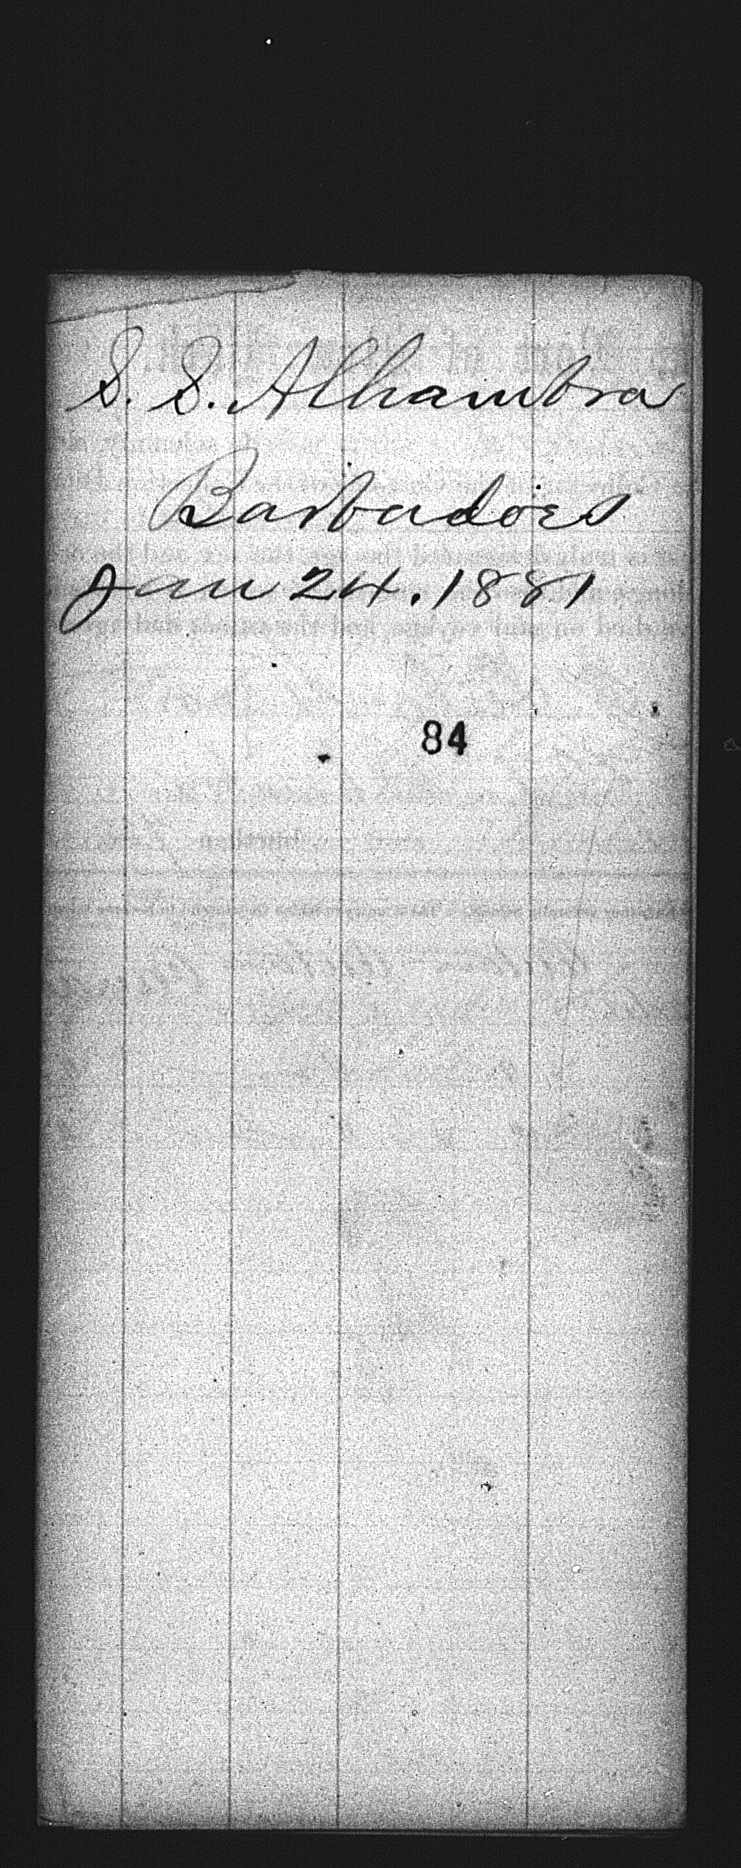 S. S. Alhambra
Barbadoes
Jan 24. 1881
84